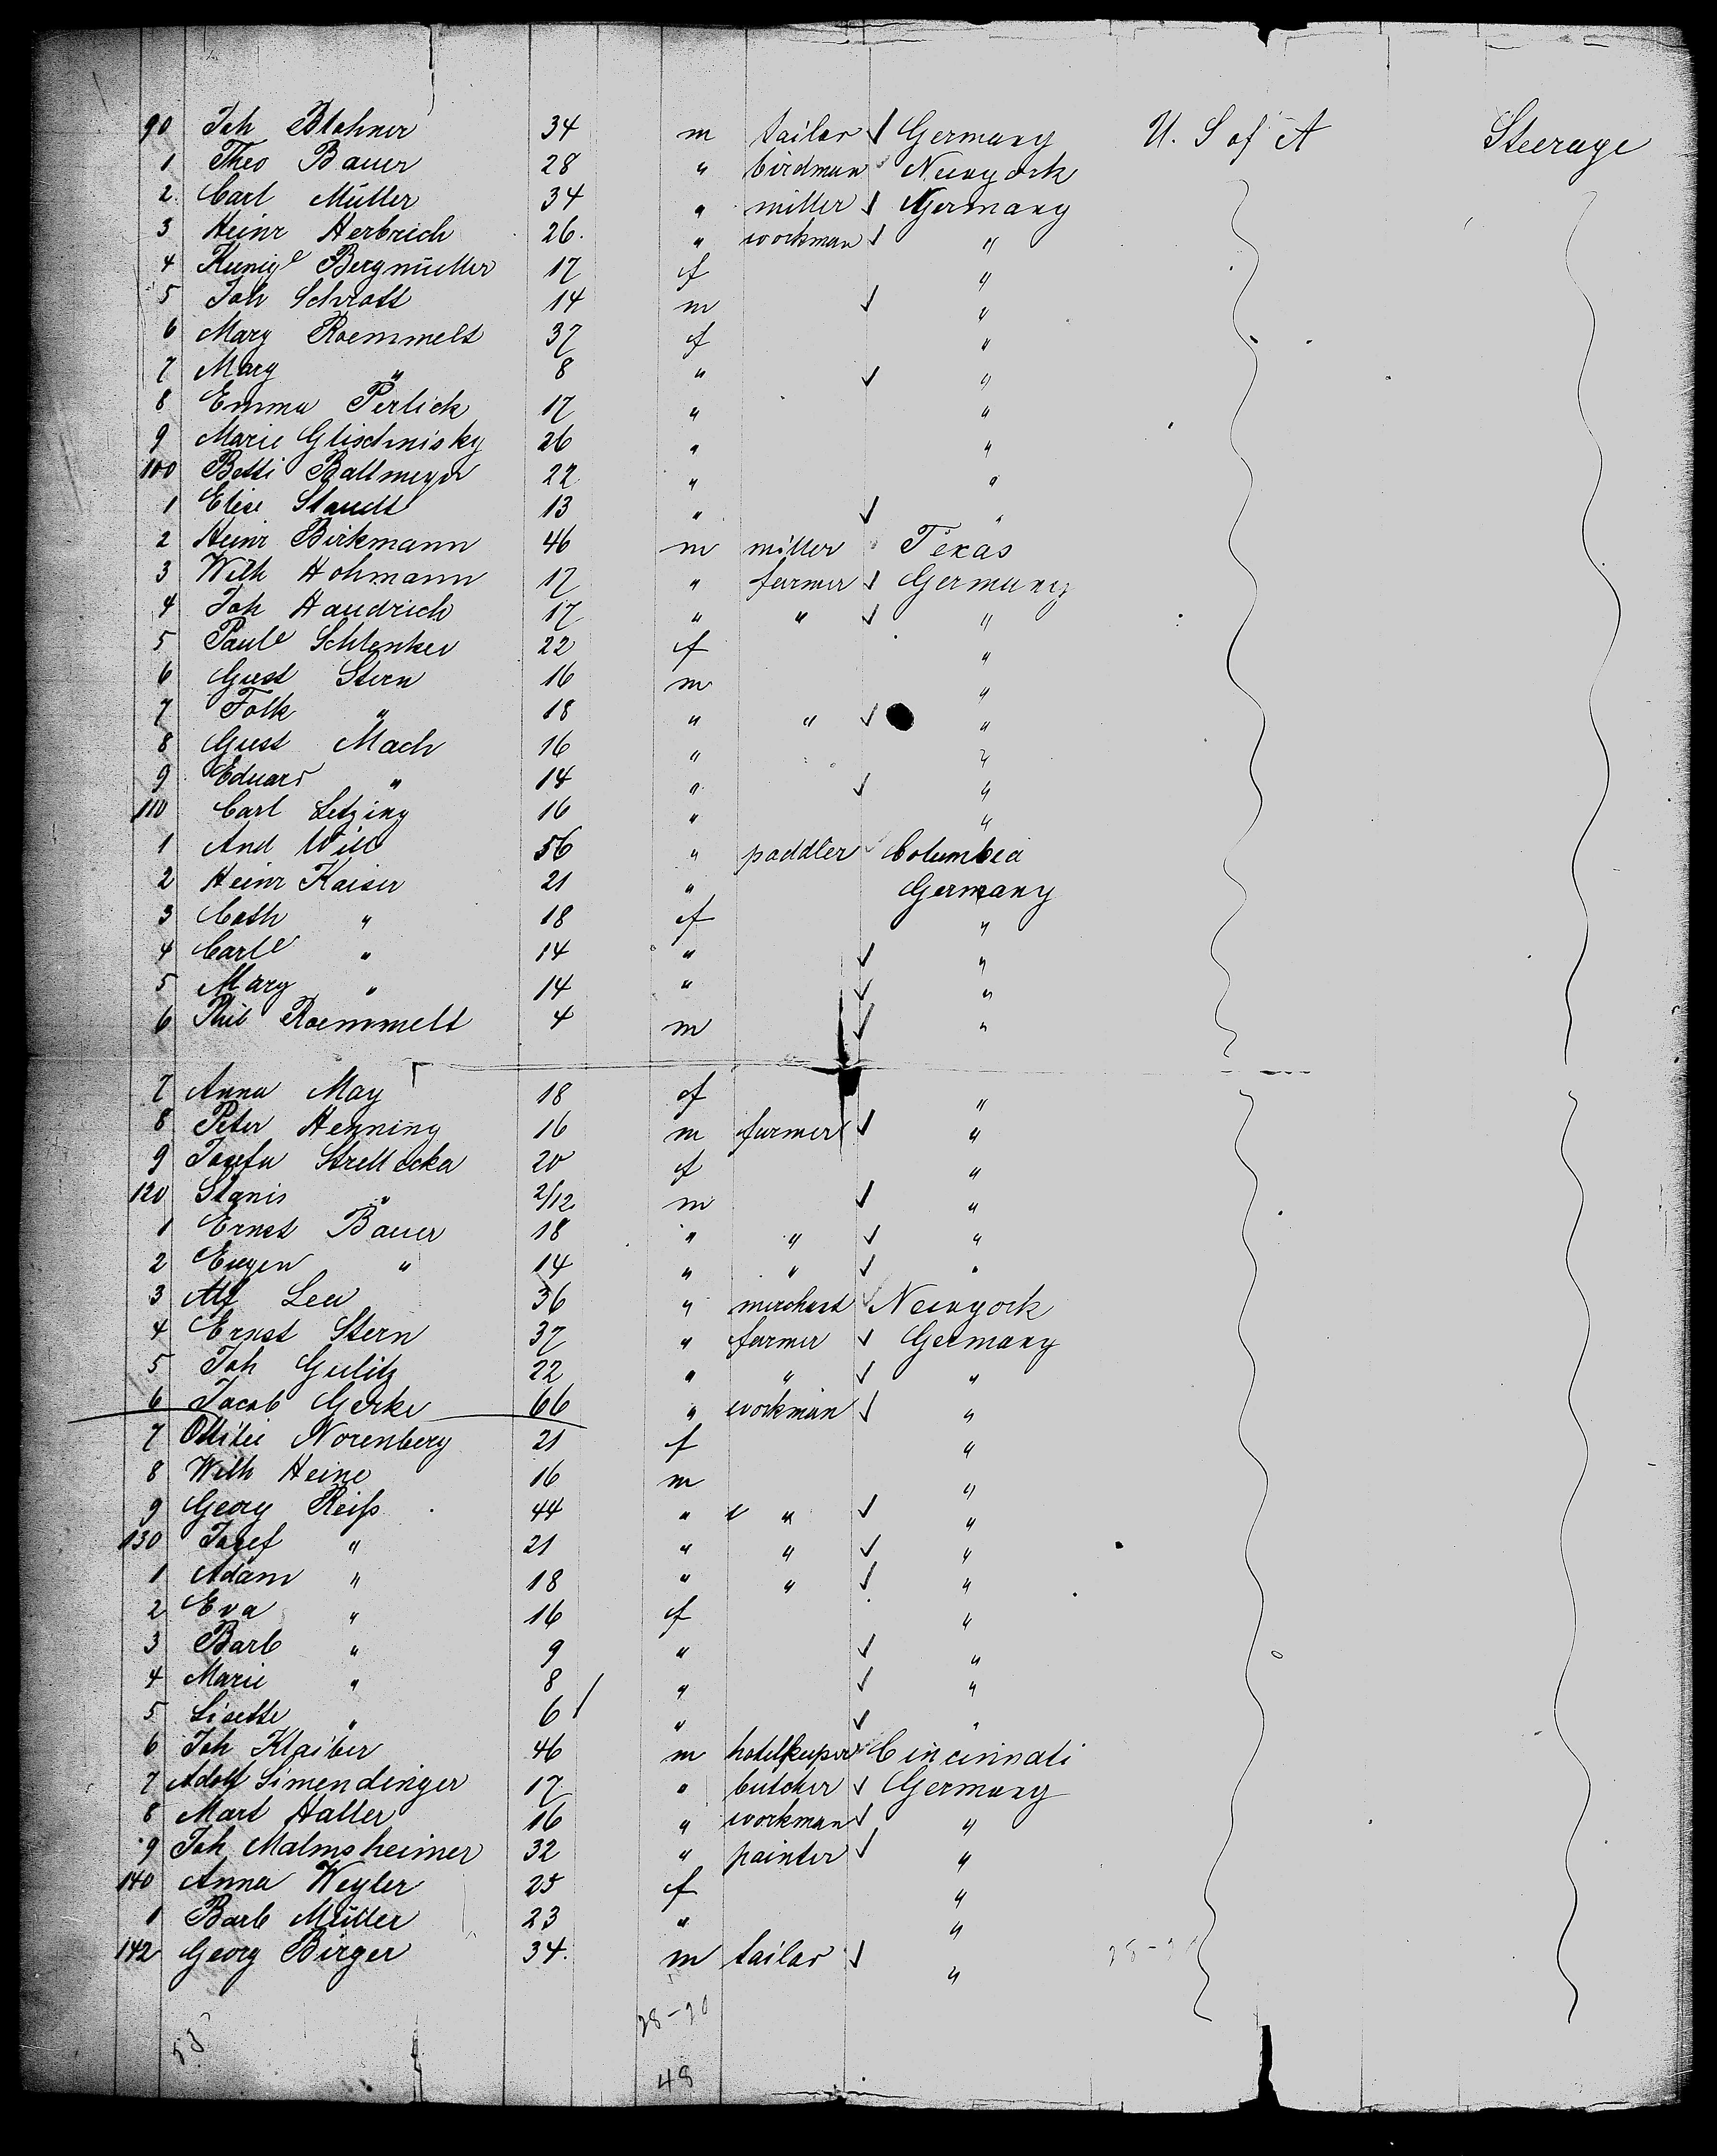 90 Joh Blohner 34 m tailor ✓ Germany U. S of A Steerage
1 Theo Bauer 28 " birdman Newyork
2 Carl Müller 34 " miller ✓ Germany
3 Heinr Herbrich 26. " workman ✓ "
4 Kunig^e Bergmüller 17 f "
5 Joh Schrott 14 m ✓ "
6 Mary Roemmelt 37 f "
7 Mary " 8 " ✓ "
8 Emma Perlick 17 " "
9 Marie Glischnisky 26 " "
100 Betti Ballmeyer 22 " "
1 Elise Staudt 13 " ✓ "
2 Heinr Birkmann 46 m miller Texas
3 Wilh Hohmann 17 " farmer ✓ Germany
4 Joh Haudrich 17 " " ✓ "
5 Paul^e Schlenker 22 f "
6 Gust Stern 16 m "
7 Folk " 18 " " ✓ "
8 Gust Mach 16 " "
9 Eduard " 14 " ✓ "
110 Carl Letzing 16 " "
1 And Will 56 " paddler Columbia
2 Heinr Kaiser 21 " Germany
3 Cath " 18 f "
4 Carl^e " 14 " ✓ "
5 Mary " 14 " ✓ "
6 Phil Roemmelt 4 m ✓ "
7 Anna May 18 f "
8 Peter Henning 16 m farmer ✓ "
9 Josefa Strellecka 20 f "
120 Stanis " 2/12 m ✓ "
1 Ernst Bauer 18 " " ✓ "
2 Eugen " 14 " " ✓ "
3 Alf Leu 36 " merchant Newyork
4 Ernst Stern 37 " farmer ✓ Germany
5 Joh Gulitz 22 " " ✓ "
6 Jacob Gerke 66 " workman ✓ "
7 Ottilie Norenberg 21 f "
8 Wilh Heine 16 m "
9 Georg Reiß 44 " " " ✓ "
130 Josef " 21 " " ✓ "
1 Adam " 18 " " ✓ "
2 Eva " 16 f "
3 Barb " 9 " ✓ "
4 Marie " 8 " ✓ "
5 Lisette " 6 " ✓ "
6 Joh Klaiber 46 m hotelkeeper Cincinnati
7 Adolf Simendinger 17 " butcher ✓ Germany
8 Mart Haller 16 " workman ✓ "
9 Joh Malmsheimer 32 " painter ✓ "
140 Anna Weyler 25 f "
1 Barb Müller 23 " "
142 Georg Birger 34. m tailor ✓ "
48